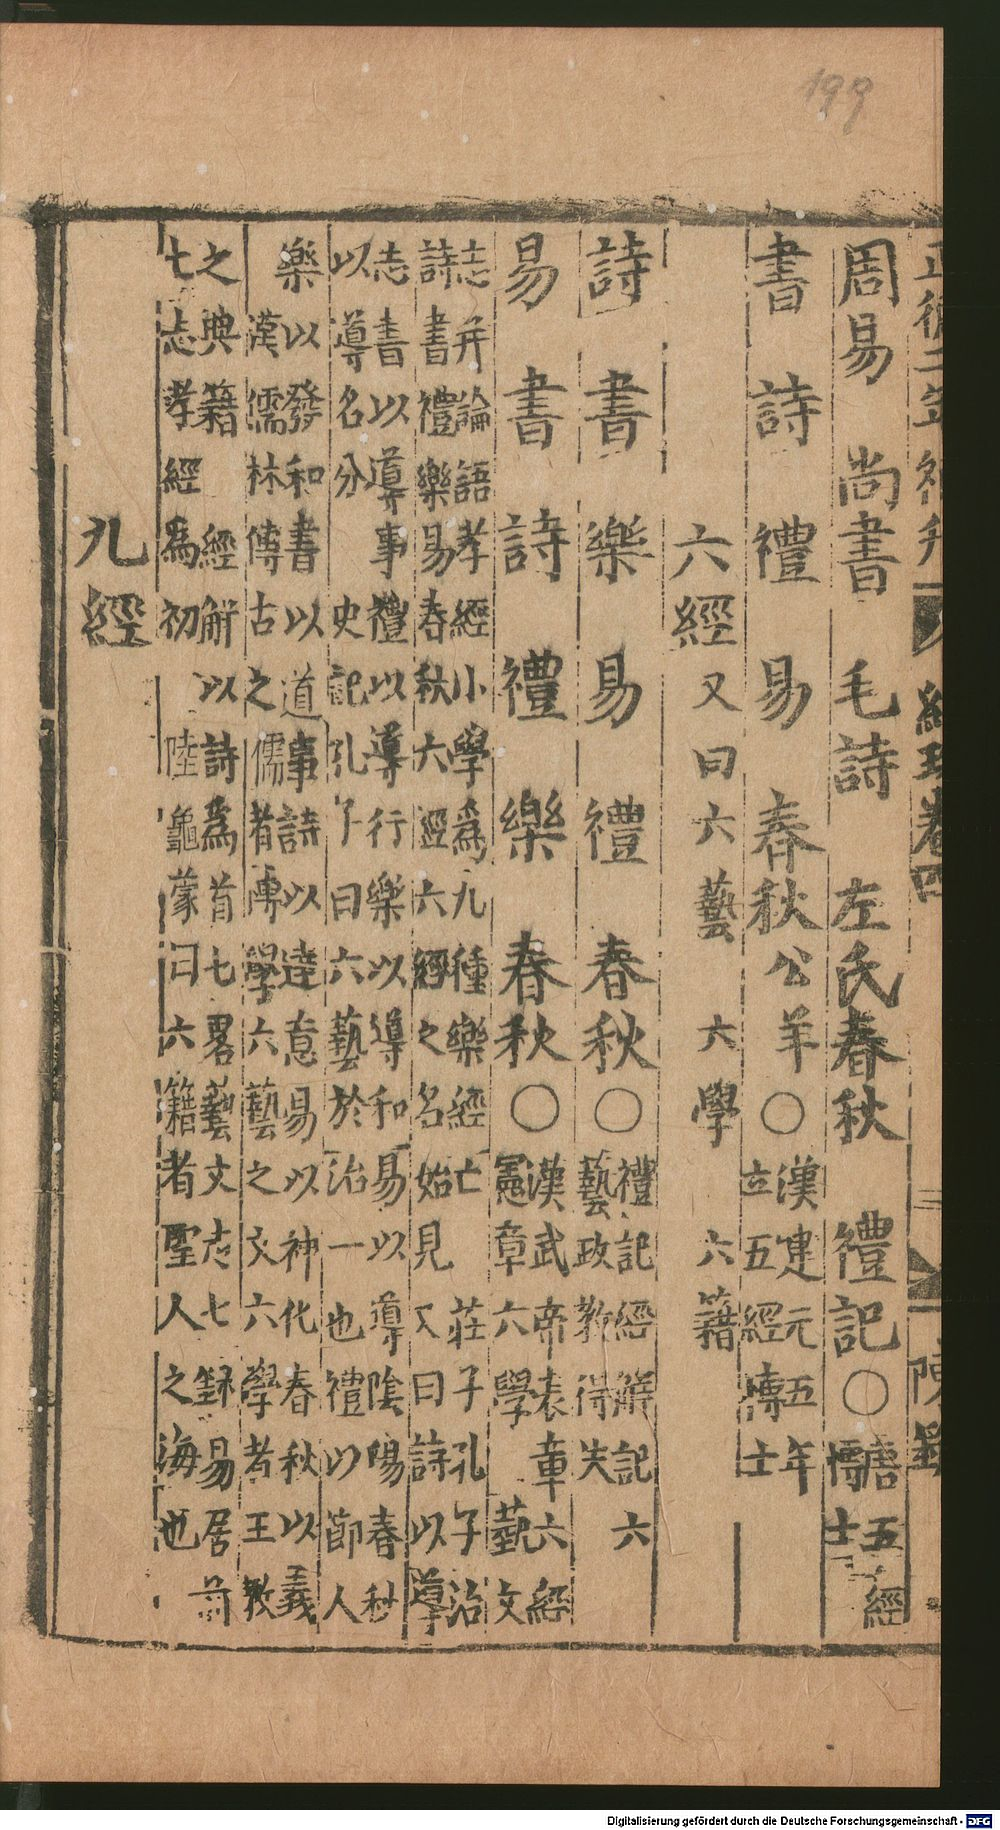 199
正德二年補刋 紺珠卷四 陳
周易 尚書 毛詩 左氏春秋 禮記○唐五經
博士
書 詩 禮 易 春秋公羊○漢建元五年
立五經博士
六經又曰六藝 六學 六籍
詩 書 樂 易 禮 春秋○禮記經解記六
藝政教得失
易 書 詩 禮 樂 春秋○漢武帝表章六經
憲章六學 藝文
志并論語孝經小學爲九種樂經亡 莊子孔子治
詩書禮樂易春秋六經六經之名始見 又曰詩以導
志書以導事禮以導行樂以導和易以導陰陽春秋
以導名分 史記孔子曰六藝於治一也禮以節人
樂以發和書以道事詩以達意易以神化春秋以義
漢儒林傳古之儒者博學六藝之文六學者王教
之典籍 經解以詩爲首七畧藝文志七錄易居前
七志孝經爲初 陸龜蒙曰六籍者聖人之海也
九經
Digitalisierung gefördert durch die Deutsche Forschungsgemeinschaft - DFG